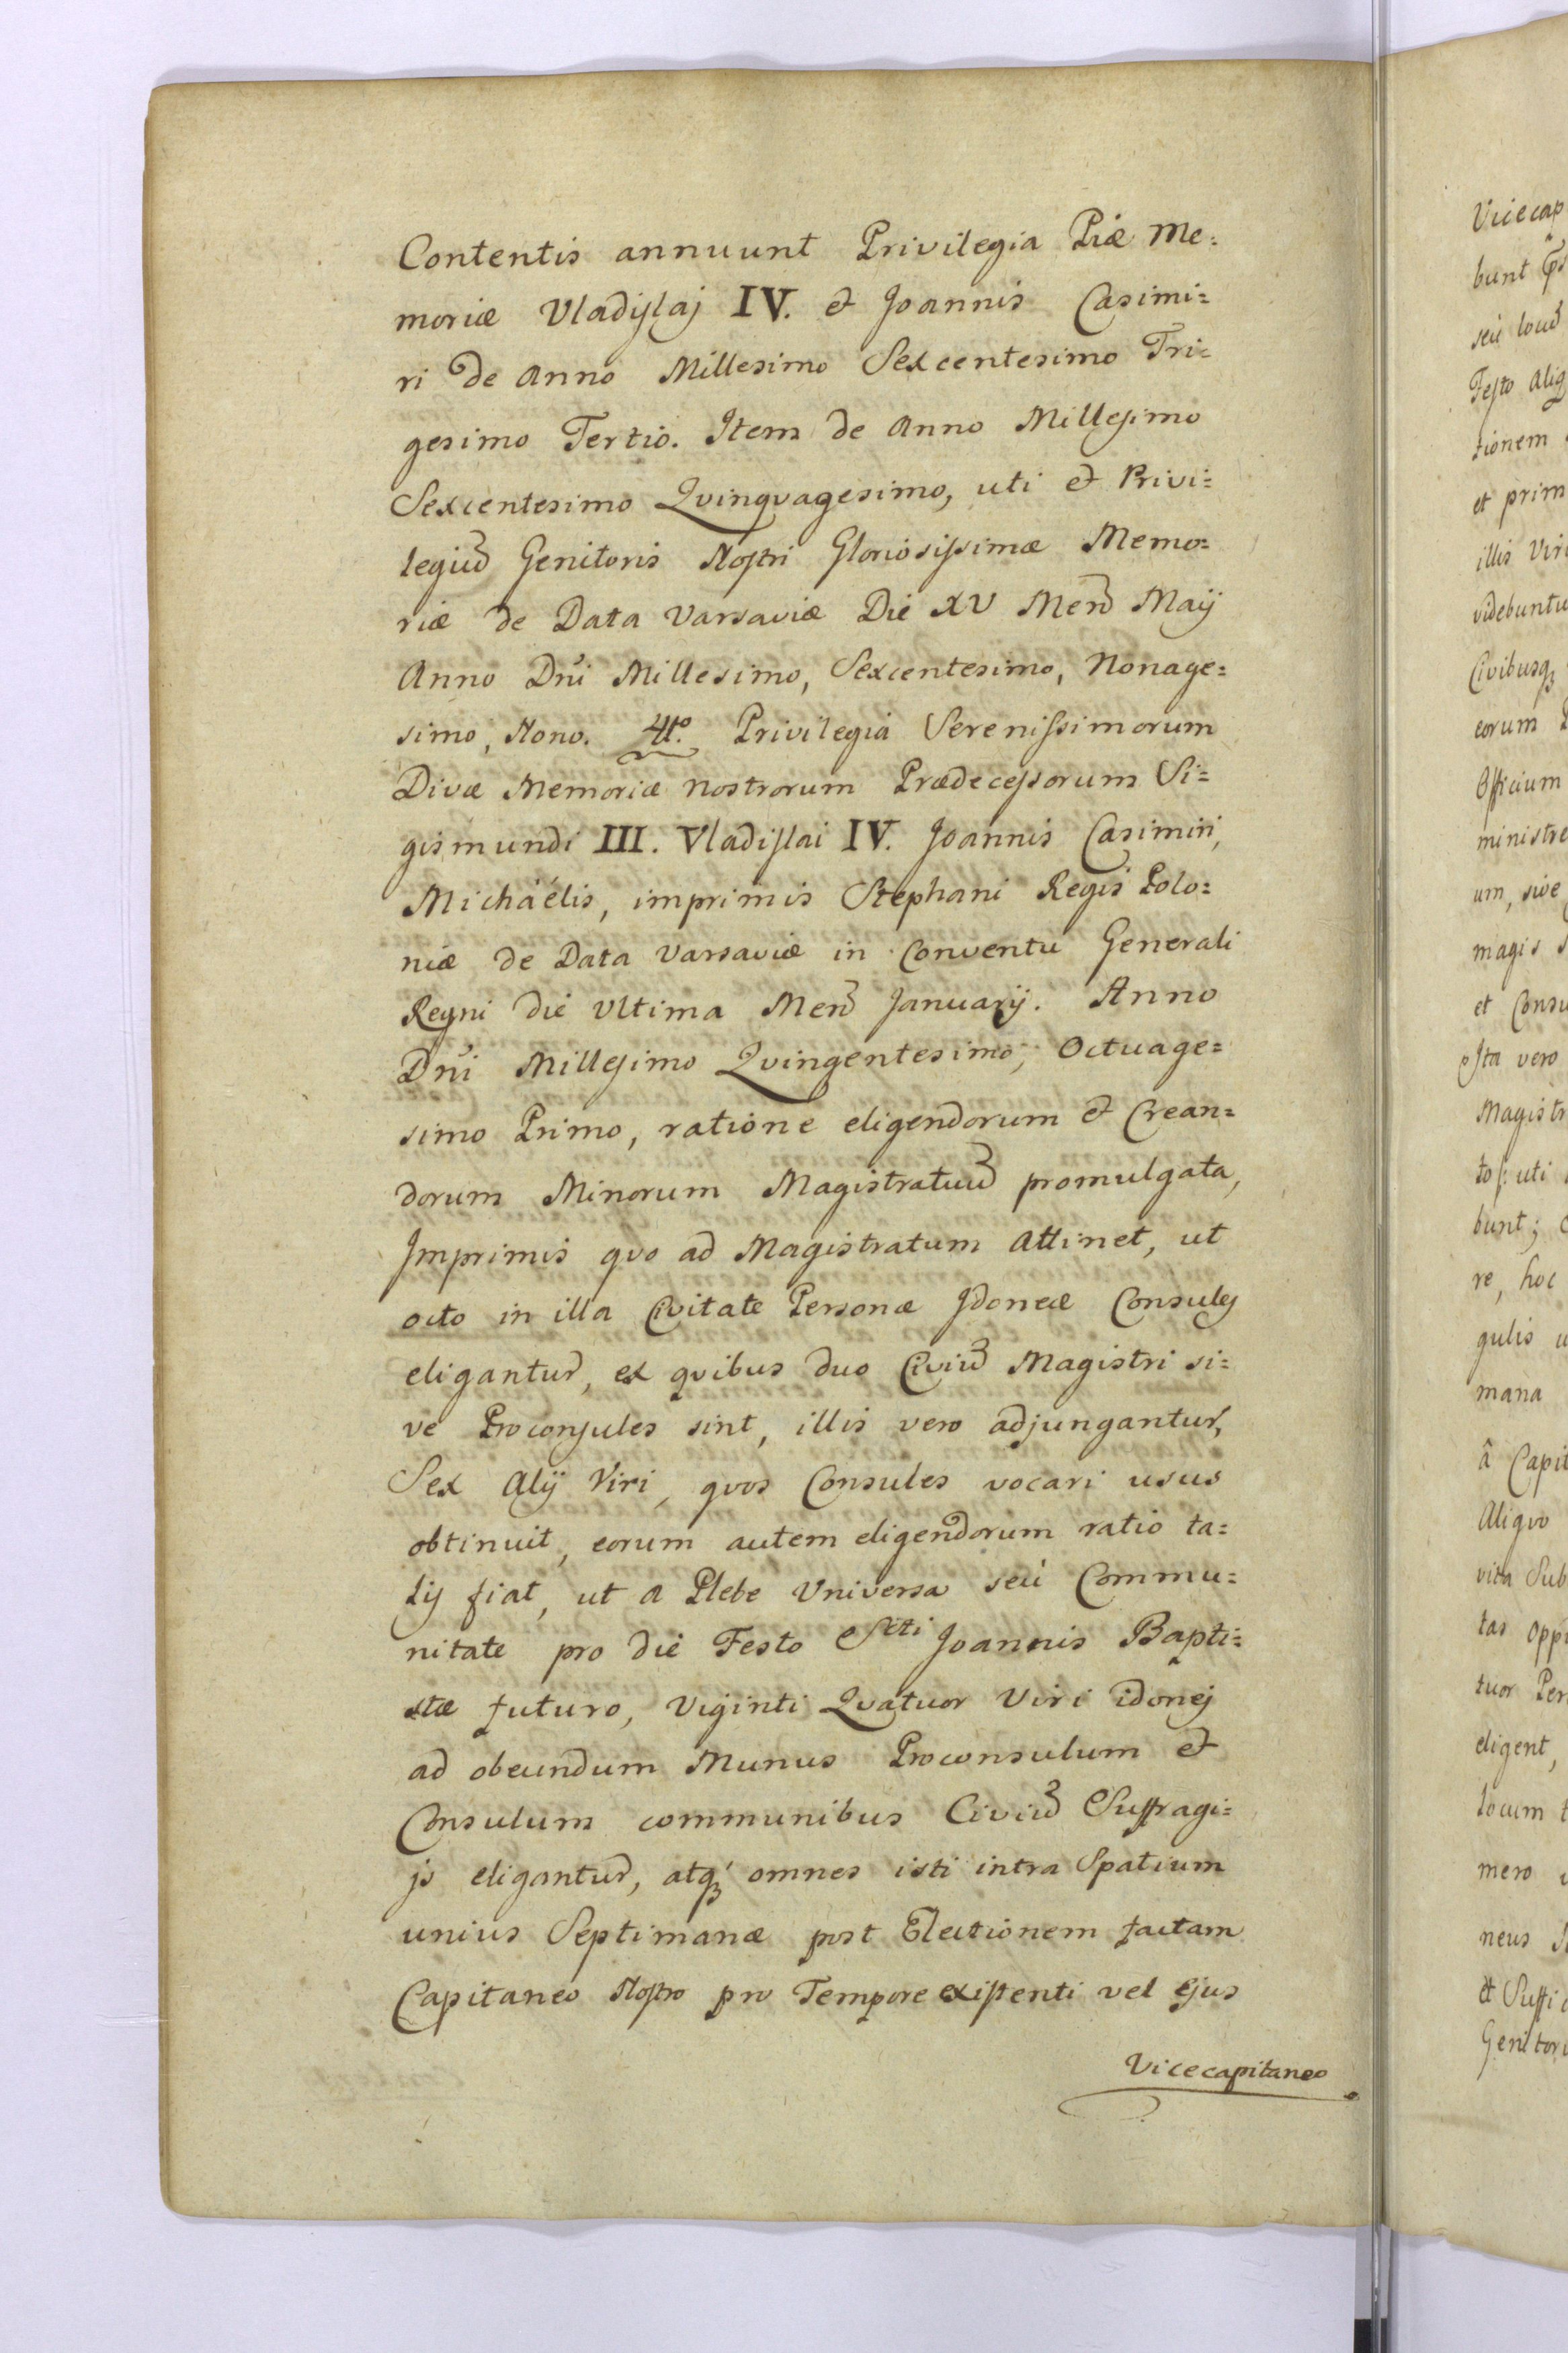 Contentis annuunt Privilegia Piæ Me=
moriæ Vladislaj IV. et Joannis Casimi=
ri de Anno Millesimo Sexcentesimo Tri=
gesimo Tertio. Item de Anno Millesimo
Sexcentesimo Qvinqvagesimo, uti et Privi=
legiū Genitoris Nostri Gloriosissimæ Memo=
riæ de Data Varsaviæ Die XV Mens̄ Maÿ
Anno Dn̄i Millesimo, Sexcentesimo, Nonage=
simo, Nono. 4to. Privilegia Serenissimorum
Divæ Memoriæ nostrorum Prædecessorum Si=
gismundi III. Vladislai IV. Joannis Casimiri,
Michaélis, imprimis Stephani Regis Polo=
niæ de Data Varsaviæ in Conventu Generali
Regni die Ultima Mens̄ Januarÿ. Anno
Dn̄i Millesimo Qvingentesimo, Octuage=
simo Primo, ratione eligendorum et Crean=
dorum Minorum Magistratuū promulgata,
Imprimis qvo ad Magistratum Attinet, ut
octo in illa Civitate Personæ Idoneæ Consules
eligantur, ex qvibus duo Civiū Magistri si=
ve Proconsules sint, illis vero adjungantur,
Sex Alÿ Viri, qvos Consules vocari usus
obtinuit, eorum autem eligendorum ratio ta=
lis fiat, ut a Plebe Universa seú Commu=
nitate pro die Festo Scti Joannis Bapti=
stæ futuro, Viginti Qvatuor Viri idonej
ad obeundum Munus Proconsulum et
Consulum communibus Civiū Suffragi=
js eligantur, atq; omnes isti intra Spatium
unius Septimanæ post Electionem factam
Capitaneo Nostro pro Tempore existenti vel Ejus
Vicecapitaneo
Vicecap
bunt
seú
Festo Aliq
tionem
et prim
illis Viri
videbuntu
Civibusq;
eorum
Officium
ministre
um, sive
magis
et Consu
Ista vero
Magistr
to/: uti
bunt;
re, hoc
gulis
mana
â Capit
Aliqvo
Sub
tas oppi
tuor Per
eligent,
locum
mero
neus
et Suffi
Genitori